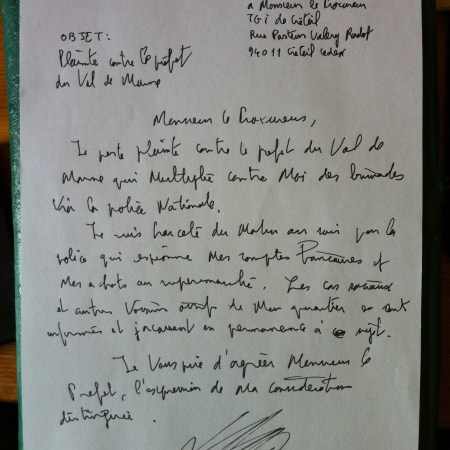 a Monsieur le Procureur
TGI de Créteil
Rue Pasteur Valery Radot
94011 Créteil cedex
OBJET:
Plainte contre le préfet
du Val de Marne
Monsieur le Procureur,
Je porte plainte contre le préfet du Val de
Marne qui multiplie contre Moi des brimades
via la police Nationale.
Je suis harcelé du Matin au soir par la
police qui espionne Mes comptes bancaires et
Mes achats au supermarché. Les cas sociaux
et autres Voisins de Mon quartier en sont
informés et jacassent en permanence à ce sujet.
Je Vous prie d'agréer Monsieur le
Préfet, l'expression de Ma considération
distinguée.